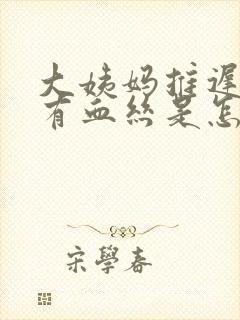 大姨妈推迟
有血丝是怎
宋學春